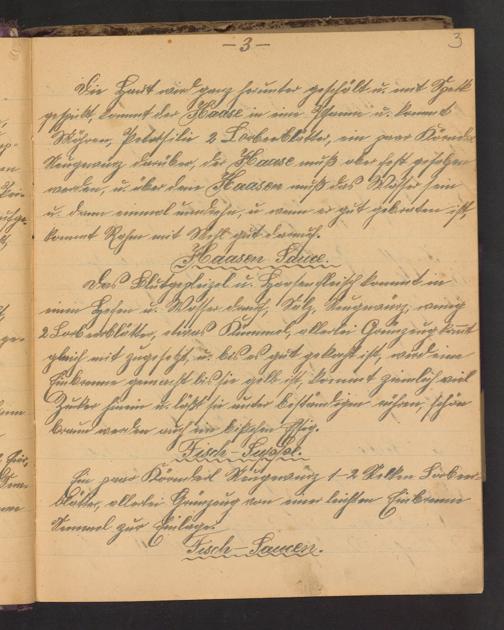 — 3 —
3
Die Haut wird ganz herunter geschält u. mit Speck
gespickt, kommt der Haase in eine Pfanne u. kommt
Möhren, Petersilie 2 Lorbeerblätter, ein paar Körndl
Neugewürz darüber, der Haase muß aber fest gesalzen
werden, u. über dem Haasen muß das Wasser sein
u. dann einmal umdrehn, u wenn er gut gebraten ist,
kommt Rahm mit Mehl gut darauf.
Haasen Sauce.
Das u. Haasenfleisch kommt in
einen Hefen u. Wasser darauf, Salz, Neugewürz, wenig
2 Lorbeerblätter, etwas Kümmel, allerlei Grünzeug kommt
gleich mit zugesetzt u. bis es gut gekocht ist, wird eine
Einbrenn gemacht bis sie gelb ist, kommt ziemlich viel
Zucker hinein u. läßt sie unter beständigen rühren, schön
braun werden auch ein bißchen Essig.
Fisch-Suppe.
Ein paar Körnderl Neugewürz 1-2 Nelken Lorbeer-
blätter, allerlei Grünzeug von einer leichten Einbrenn
Semmel zur Einlage.
Fisch-Saucen.